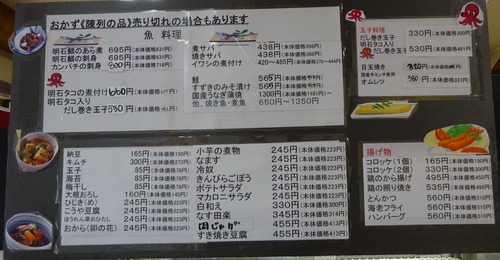 おかず《陳列の品》売り切れの場合もあります
魚 料理
明石鯛のあら煮 695円(本体価格631円)
明石鯛の刺身 695円
カンパチの刺身
煮サバ 438円(本体価格398円)
焼きサバ 438円(本体価格398円)
イワシの煮付け 420~485円
鮭 565円
すずきのみそ漬け 565円
国産うなぎ蒲焼 1300円
他、焼き魚・煮魚 650~1350円
明石タコの煮付け 600円
明石タコ入り
だし巻き玉子 530円
玉子料理
だし巻き玉子 330円(本体価格300円)
明石タコ入り
だし巻き玉子 530円
目玉焼き
国産牛ミンチ使用
オムレツ
納豆 165円(本体価格150円)
キムチ 300円(本体価格272円)
玉子 85円(本体価格78円)
海苔 85円(本体価格78円)
梅干し 85円(本体価格78円)
大根おろし 160円(本体価格145円)
ひじき(め) 245円(本体価格223円)
こうや豆腐 245円(本体価格223円)
ほうれん草おひたし 245円(本体価格223円)
おから(卯の花) 245円(本体価格223円)
小芋の煮物 245円(本体価格223円)
なます 245円(本体価格223円)
冷奴 245円(本体価格223円)
きんぴらごぼう 245円(本体価格223円)
ポテトサラダ 245円(本体価格223円)
マカロニサラダ 245円(本体価格223円)
白和え 330円(本体価格300円)
なす田楽 245円(本体価格223円)
肉じゃが 455円(本体価格413円)
すき焼き豆腐 455円(本体価格413円)
揚げ物
コロッケ(1個) 165円(本体価格150円)
コロッケ(2個) 330円(本体価格300円)
鶏のから揚げ 495円(本体価格450円)
鶏の照り焼き 535円(本体価格486円)
とんかつ 510円(本体価格463円)
海老フライ 560円(本体価格509円)
ハンバーグ 510円(本体価格463円)